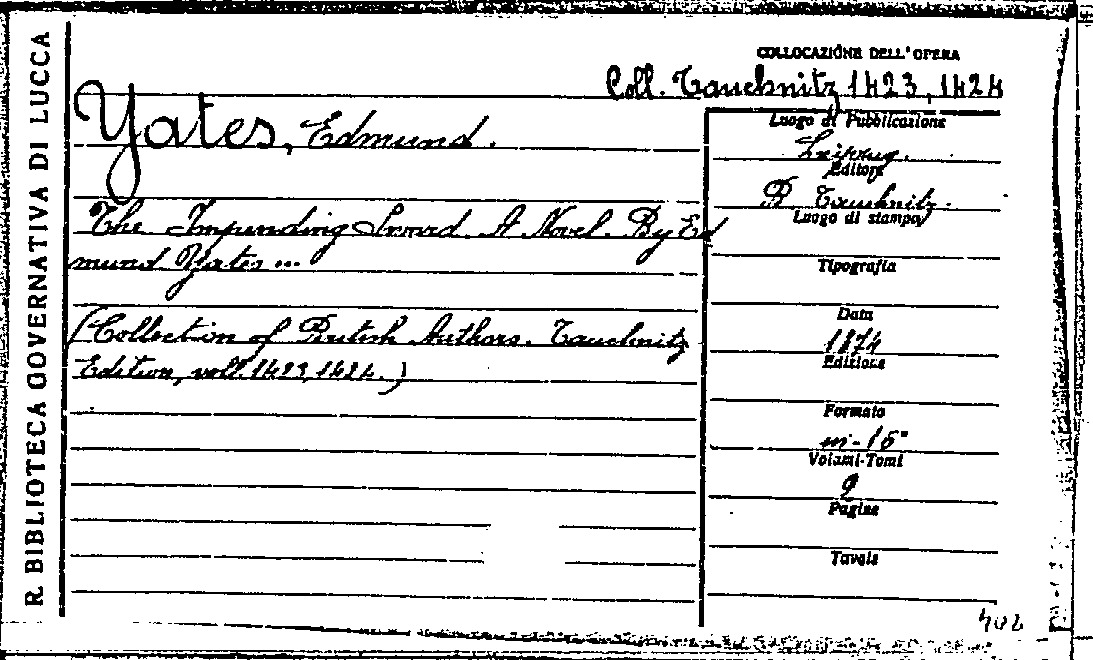 R. BIBLIOTECA GOVERNATIVA DI LUCCA
COLLOCAZIONE DELL'OPERA
Coll. Tauchnitz 1423, 1424
Yates, Edmund.
The Impending Sword. A Novel. By Ed
mund Yates ...
(Collection of British Authors. Tauchnitz
Edition, voll. 1423, 1424.)
Luogo di Pubblicazione
Leipzig.
Editore
B. Tauchnitz.
Luogo di stampa
Tipografia
Data
1874
Edizione
Formato
in-16°
Volumi-Tomi
Pagine
Tavole